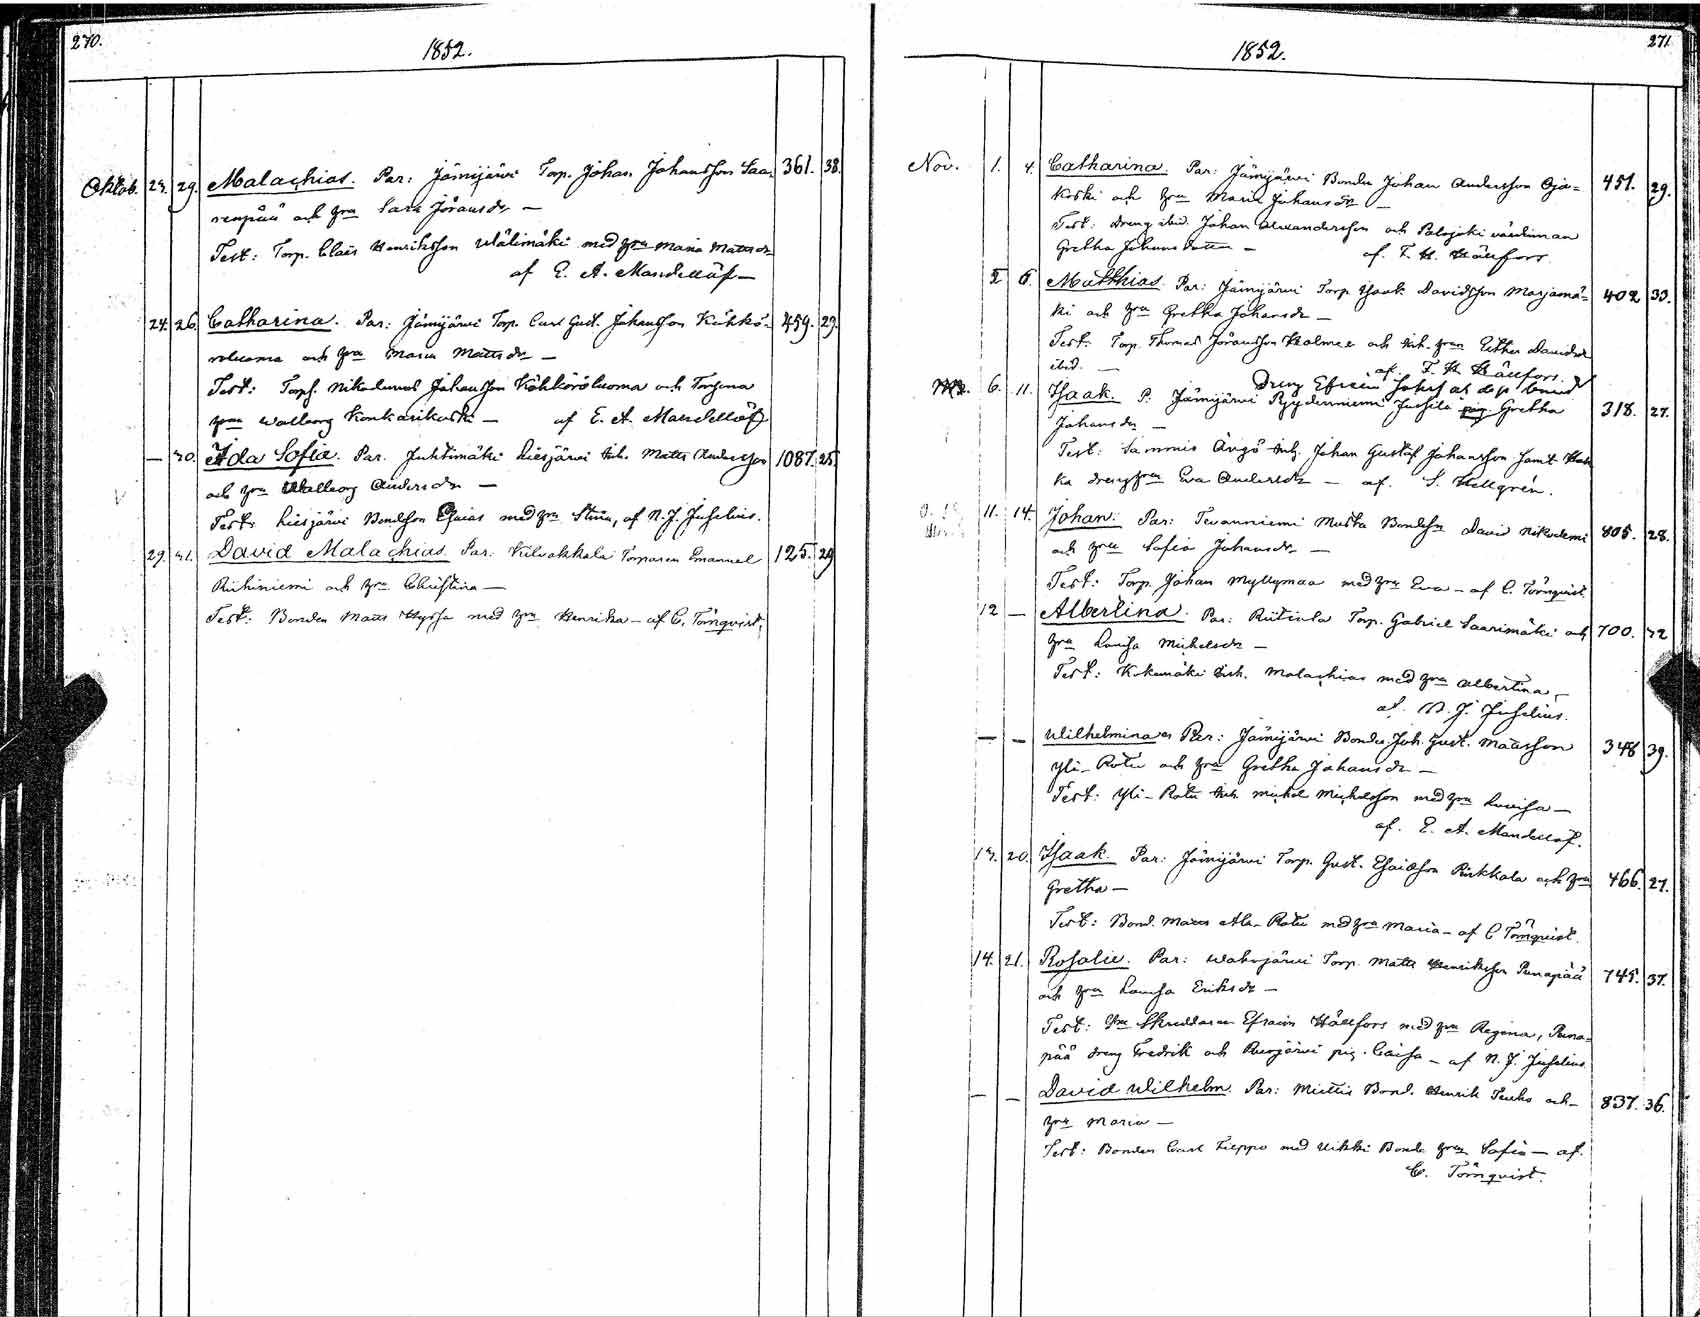 270.
1852.
Oktob. 23. 29. Malachias. Par: Jämijärvi Torp. Johan Johansson Saa- 361. 38.
renpää och hru Sara Jöransdr —
Test: Torp. Claës Henriksson Wälimäki med hru Maria Mattsdr
af E. A. Mandellöf —
24. 26. Catharina. Par: Jämijärvi Torp. Carl Gust. Johansson Köhkö- 459. 29.
roluoma och hru Maria Mattsdr —
Test: Torp. Nikodemus Johansson Köhköröluoma och Torpena
hru Walborg Kontkarikoski — af E. A. Mandellöf
— 30. Ida Sofia. Par. Juhtimäki Kiesjärvi Inh. Matts Andersson 1087. 25.
och hru Walborg Andersdr —
Test: Kiesjärvi Bondson Esaias med hru Stina, af N. J. Juselius.
29. 31. David Malachias. Par: Kilvakkala Torparen Emanuel 125. 29
Riihiniemi och hru Christina —
Test: Bonden Matts Hyssä med hru Henrika — af C. Törnqvist.
271
1852.
Nov. 1. 4. Catharina. Par: Jämijärvi Bonden Johan Andersson Oja- 451. 29.
koski och hru Maria Johansdr —
Test: Dreng ibid. Johan Alexandersson och Palojoki
Gretha Johansdotter — af. F. H. Hällfors.
2 6. Matthias. Par: Jämijärvi Torp. Isaak Davidsson Marjamä- 402. 33.
ki och hru Gretha Johansdr —
Test: Torp. Thomas Jöransson Holma och Inh. hru Esther Davidsdr
ibid. — af. F. H. Hällfors.
Dreng Efraim
6. 11. Isaak. P. Jämijärvi Jussila Gretha 318. 27.
Johansdr —
Test: Sammis Ängö Inh. Johan Gustaf Johansson samt
ka drenghru Eva Andersdr — af. S. Hellgrén.
11. 14. Johan. Par: Tevanniemi Muska Bondson David Nikodemi 805. 28.
och hru Sofia Johansdr —
Test: Torp. Johan Myllymaa med hru Eva — af C. Törnqvist.
12 — Albertina. Par: Riitiala Torp. Gabriel Saarimäki och 700. 32
hru Lovisa Michelsdr —
Test: Kokemäki Inh. Malachias med hru Albertina,
af. N. J. Juselius.
— — Wilhelmina. Par: Jämijärvi Bonden Joh. Gust. Mattsson 348 39.
Yli-Rotu och hru Gretha Johansdr —
Test: Yli-Rotu Inh. Michel Michelsson med hru Lovisa —
af. E. A. Mandellöf.
13. 20. Isaak. Par: Jämijärvi Torp. Gust. Esaiasson Pirkkala och hru 466. 27.
Gretha —
Test: Bond. Matts Ala-Rotu med hru Maria — af C Törnqvist.
14. 21. Rosalie. Par: Wahojärvi Torp. Matts Henriksson Punapää 745. 37.
och hru Lovisa Eriksdr —
Test: Skreddaren Efraim Hällfors med hru Regina, Puna-
pää dreng Fredrik och Ruojärvi pig. Caisa — af N. J. Juselius.
— — David Wilhelm. Par: Miettis Bond. Henrik Teuho och 837. 36.
hru Maria —
Test: Bonden Carl Lieppo med Uikki Bond. hru Sofia — af.
C. Törnqvist.